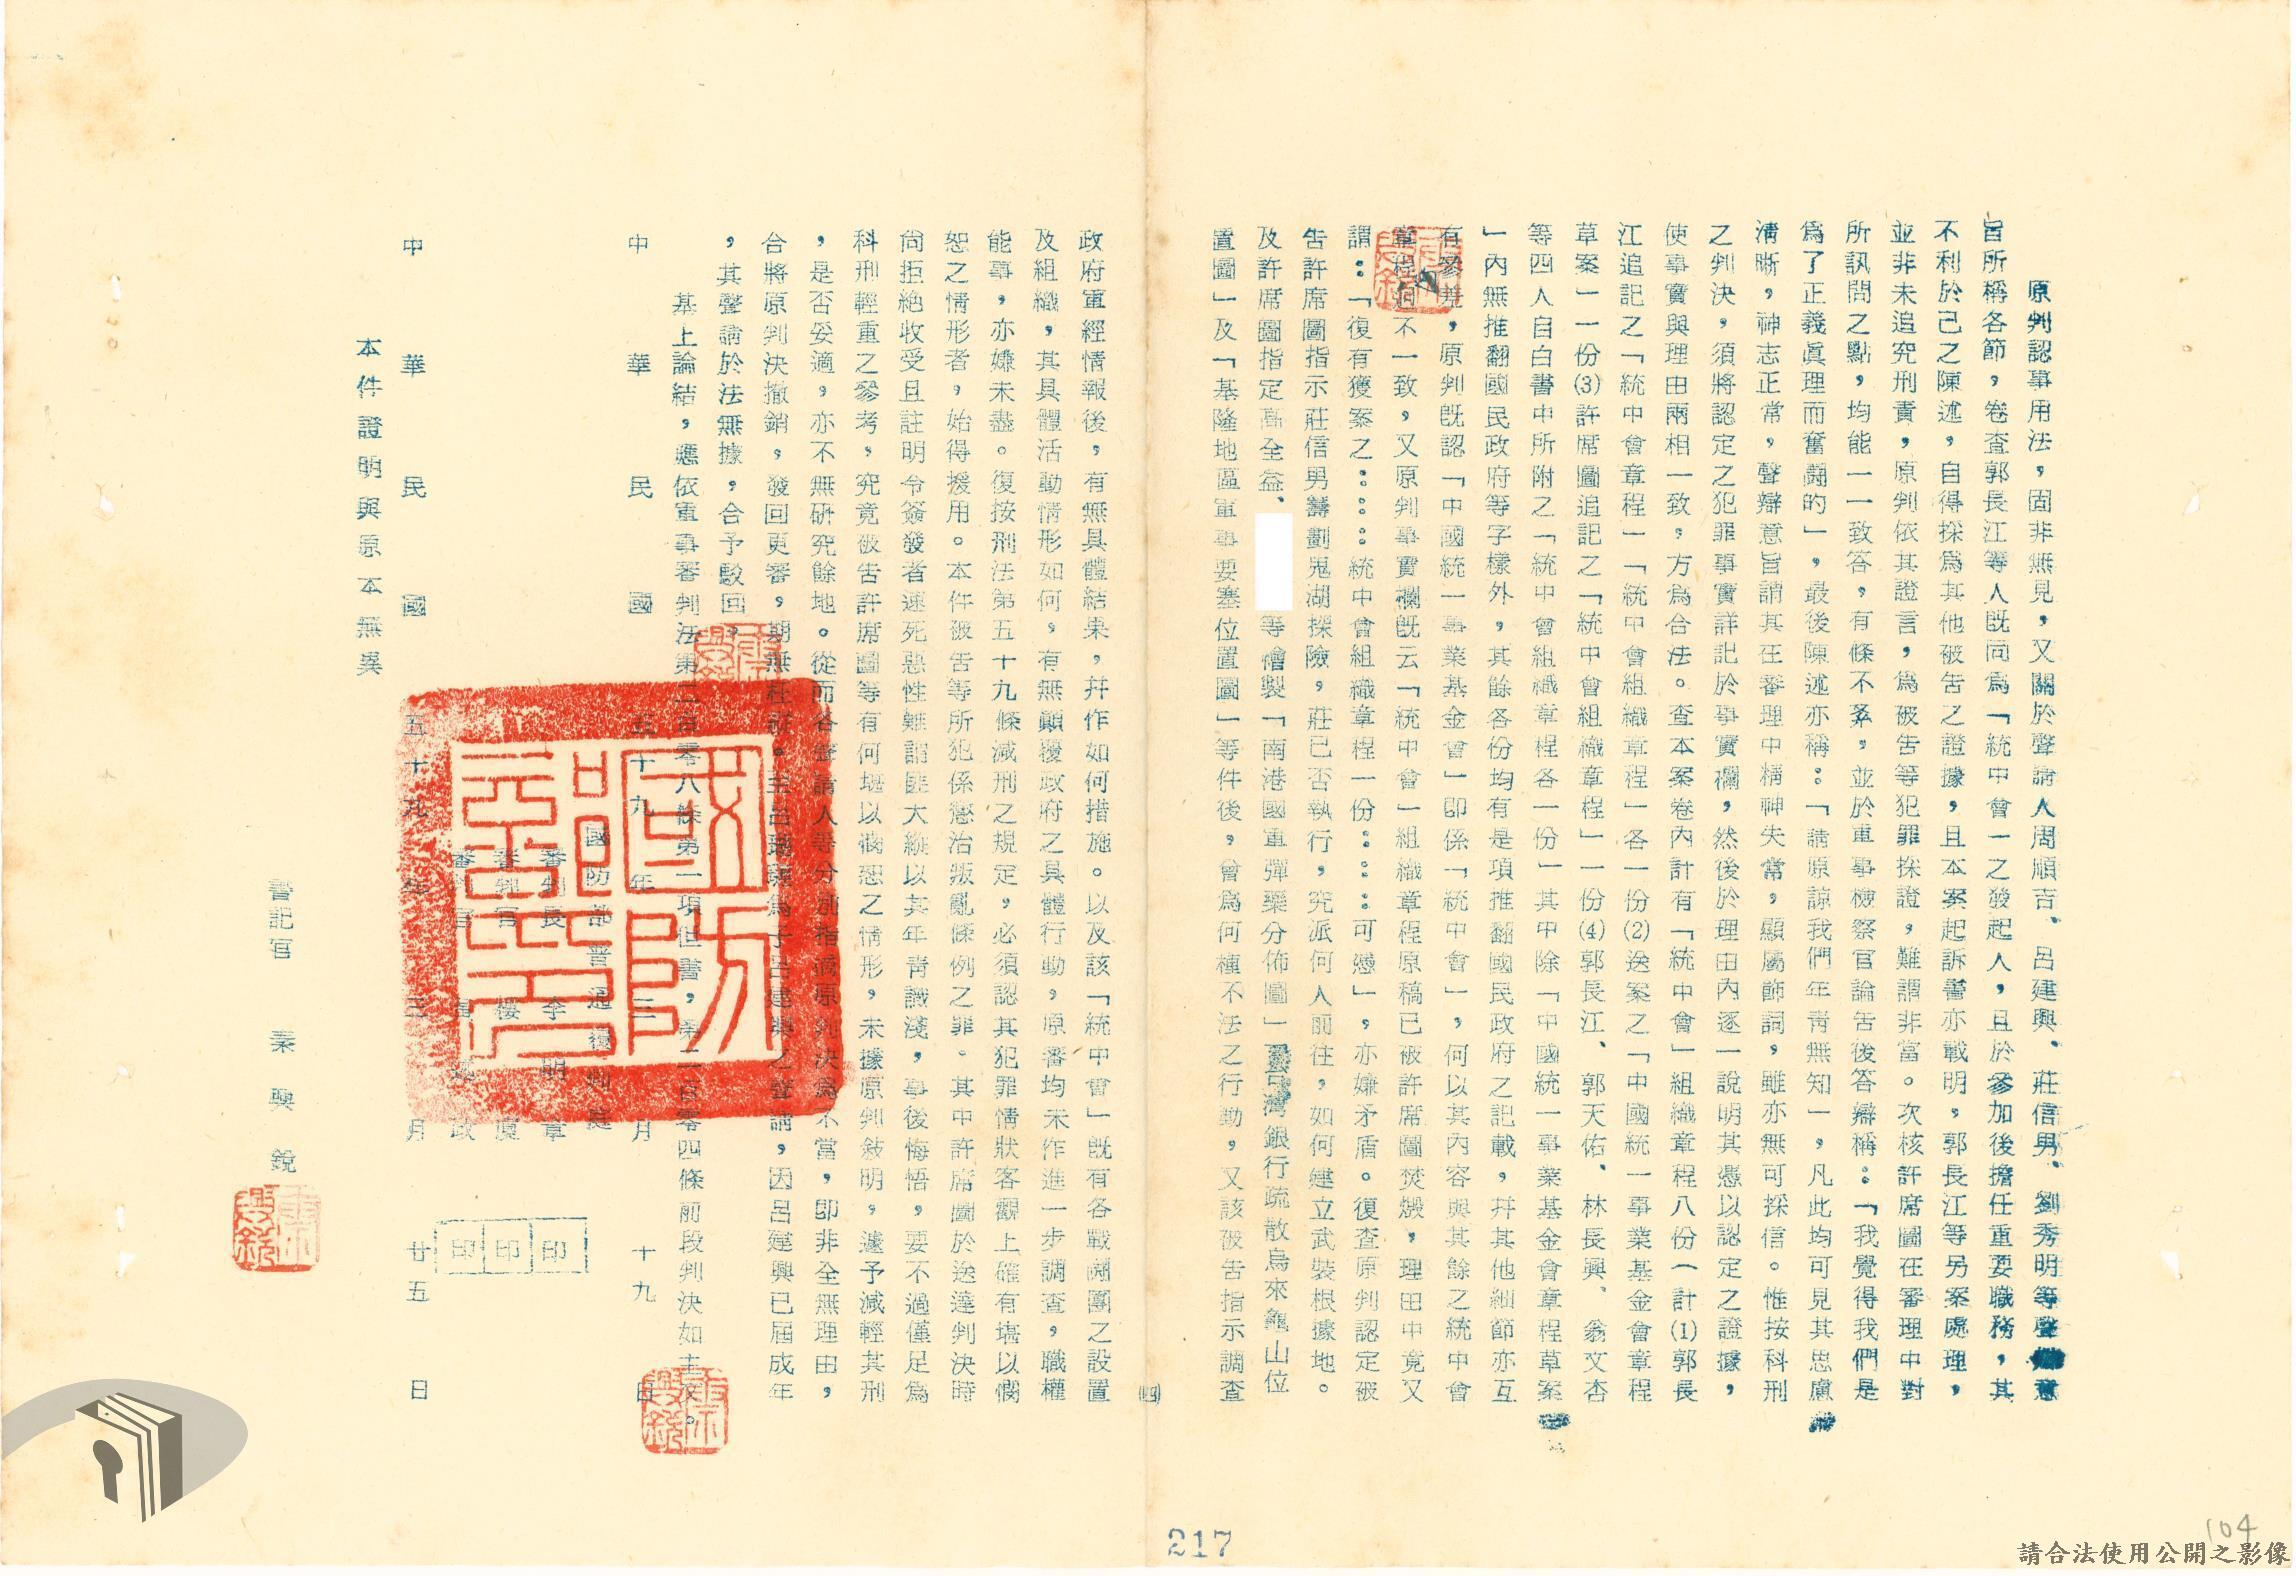 原判認事用法，固非無見，又關於聲請人周順吉、呂建興、莊信男、劉秀明等聲請意
旨所稱各節，卷查郭長江等人既同為「統中會一之發起人，且於參加後擔任重要職務，其
不利於己之陳述，自得採為其他被告之證據，且本案起訴書亦載明，郭長江等另案處理，
並非未追究刑責，原判依其證言，為被告等犯罪採證，難謂非當。次核許席圖在審理中對
所訊問之點，均能一一致答，有條不紊，並於軍事檢察官論告後答辯稱：「我覺得我們是
為了正義真理而奮鬪的」，最後陳述亦稱：「請原諒我們年青無知」，凡此均可見其思慮
清晰，神志正常，聲辯意旨謂其在審理中精神失常，顯屬飾詞，雖亦無可採信。惟按科刑
之判決，須將認定之犯罪事實詳記於事實欄，然後於理由內逐一說明其憑以認定之證據，
使事實與理由兩相一致，方為合法。查本案卷內計有「統中會」組織章程八份一計⑴郭長
江追記之「統中會章程」「統中會組織章程」各一份⑵送案之「中國統一事業基金會章程
草案」一份⑶許席圖追記之「統中會組織章程」一份⑷郭長江、郭天佑、林長興、翁文杏
等四人自白書中所附之「統中會組織章程各一份」其中除「中國統一事業基金會章程草案
」內無推翻國民政府等字樣外，其餘各份均有是項推翻國民政府之記載，幷其他細節亦互
有參差，原判既認「中國統一事業基金會」即係「統中會」，何以其內容與其餘之統中會
章程洞不一致，又原判事實欄既云「統中會」組織章程原稿已被許席圖焚燬，理由中竟又
謂：「復有獲案之：：：：統中會組織章程一份：：：：可憑」，亦嫌矛盾。復查原判認定被
告許席圖指示莊信男籌劃鬼湖探險，莊已否執行，究派何人前往，如何建立武裝根據地。
及許席圖指定高全益、等繪製「南港國軍彈藥分佈圖」「臺灣銀行疏散烏來龜山位
置圖」及「基隆地區軍事要塞位置圖」等件後，曾為何種不法之行動，又該被告指示調查
㈣
政府軍經情報後，有無具體結果，幷作如何措施。以及該「統中會」既有各戰鬪團之設置
及組織，其具體活動情形如何，有無顛覆政府之具體行動，原審均未作進一步調查，職權
能事，亦嫌未盡。復按刑法第五十九條減刑之規定，必須認其犯罪情狀客觀上確有堪以憫
恕之情形者，始得援用。本件被告等所犯係懲治叛亂條例之罪。其中許席圖於送達判決時
尚拒絕收受且註明令簽發者速死惡性難謂匪大縱以其年青識淺，事後悔悟，要不過僅足為
科刑輕重之參考，究竟被告許席圖等有何堪以憫恕之情形，未據原判敍明，遽予減輕其刑
，是否妥適，亦不無研究餘地。從而各聲請人等分別指摘原判決為不當，即非全無理由，
合將原判決撤銷，發回更審，期無枉縱。至呂瑞麟為子呂建興之聲請，因呂建興已屆成年
，其聲請於法無據，合予駁回。
基上論結，應依軍事審判法第二百零八條第一項但書，第二百零四條前段判決如主文。
中華民國五十九年三月十九日
國防部普通覆判庭
審判長李明章印
審判官樓印
審判官印
中華民國五十九年三月廿五日
本件證明與原本無異
書記官秦興銳
國防部印
217
104
請合法使用公開之影像